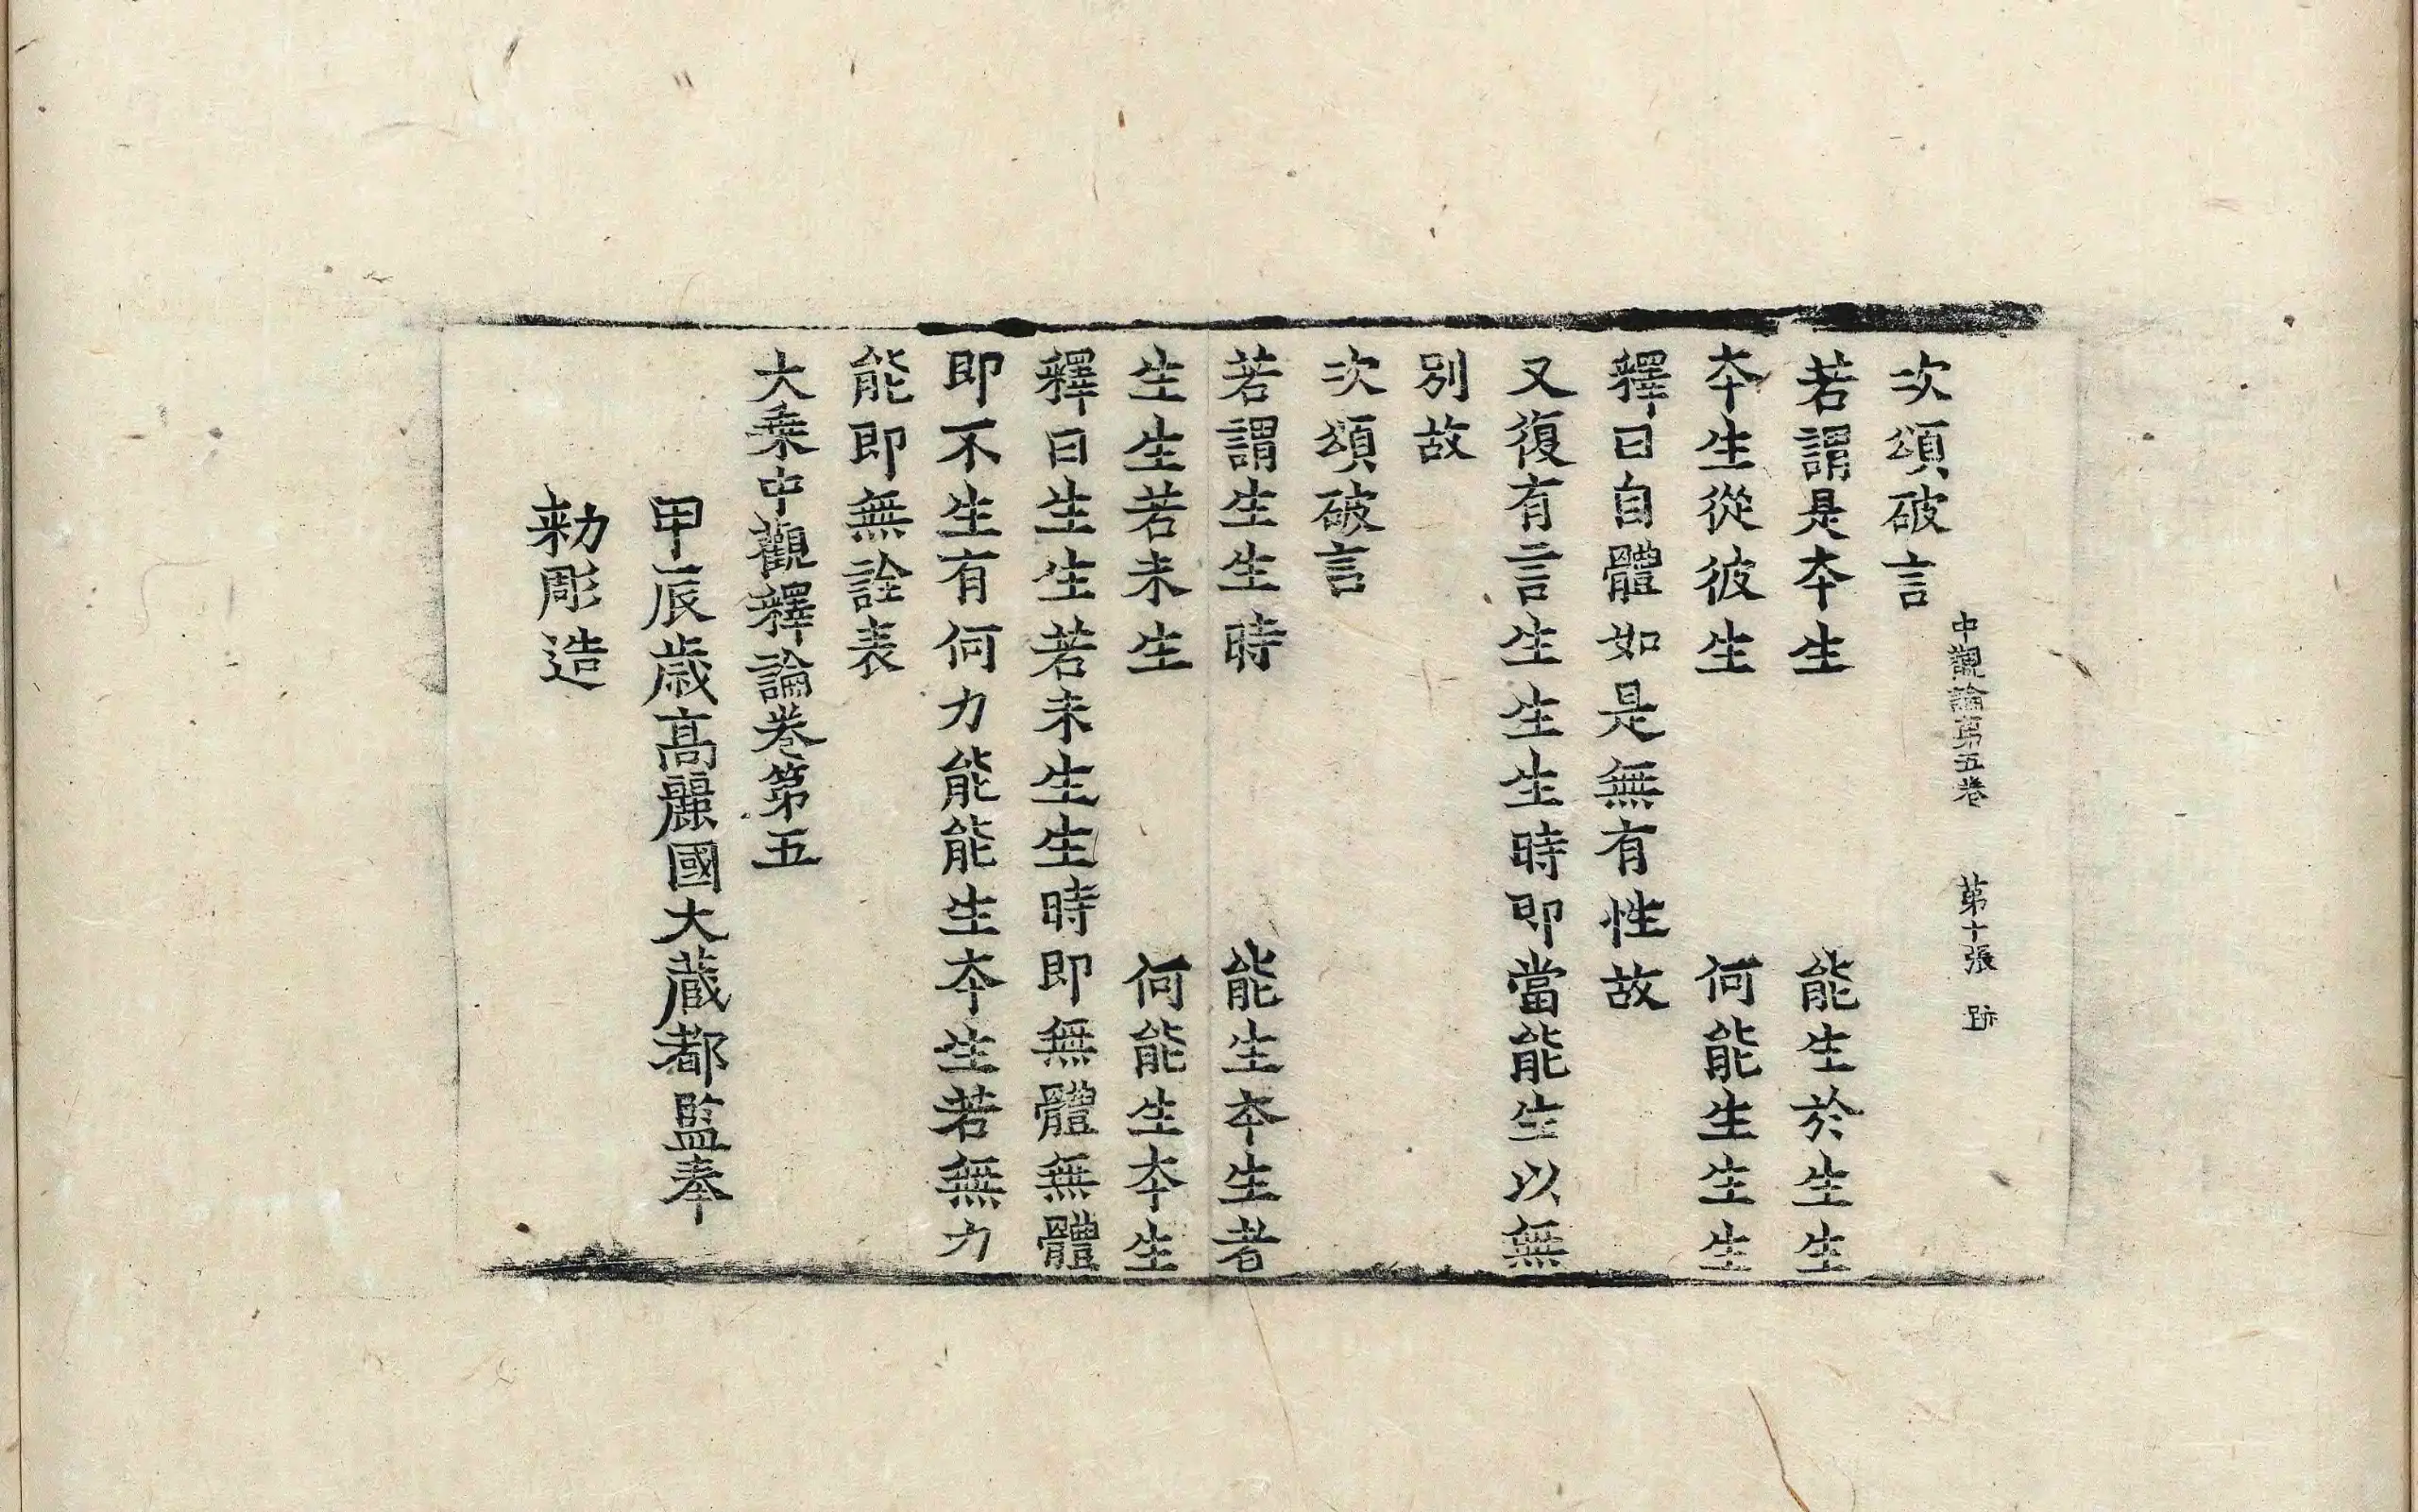 中觀論第五卷 第十張 跡
次頌破言
若謂是夲生 能生於生生
夲生從彼生 何能生生生
釋曰自體如是無有性故
又復有言生生生生時即當能生以無
別故
次頌破言
若謂生生時 能生夲生者
生生若未生 何能生夲生
釋曰生生若未生生時即無體無體
即不生有何力能能生夲生若無力
能即無詮表
大乗中觀釋論卷第五
甲辰歲高麗國大藏都監奉
勑彫造